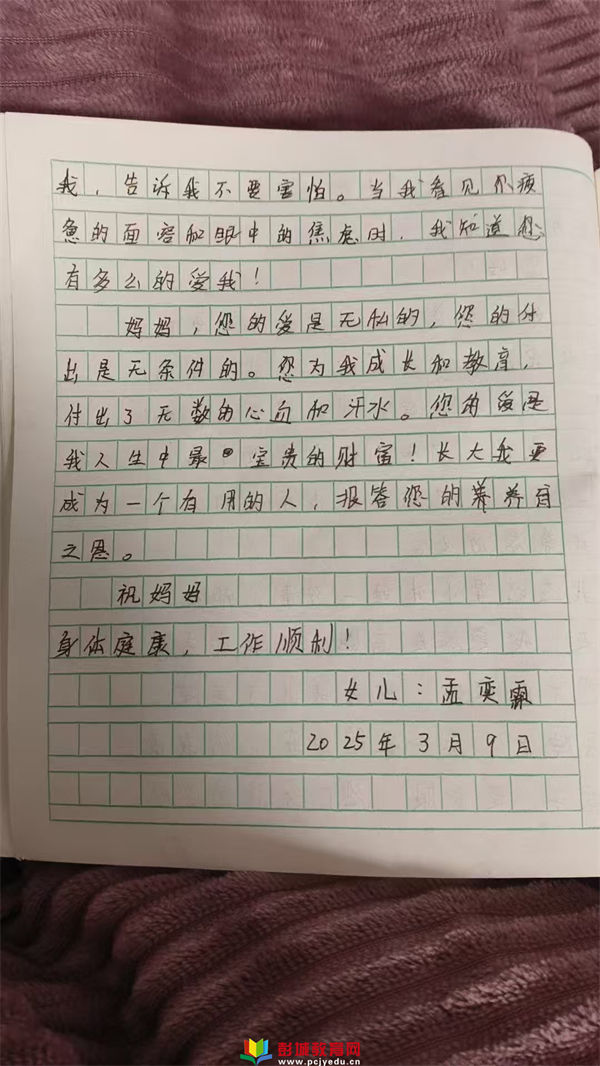 我，告诉我不要害怕。当我看见您疲
惫的面容和眼中的焦虑时，我知道您
有多么的爱我！
妈妈，您的爱是无私的，您的付
出是无条件的。您为我成长和教育，
付出了无数的心血和汗水。您的爱是
我人生中最宝贵的财富！长大我要
成为一个有用的人，报答您的养养育
之恩。
祝妈妈
身体健康，工作顺利！
女儿：孟奕霖
2025年3月9日
彭城教育网
www.pcjyedu.cn